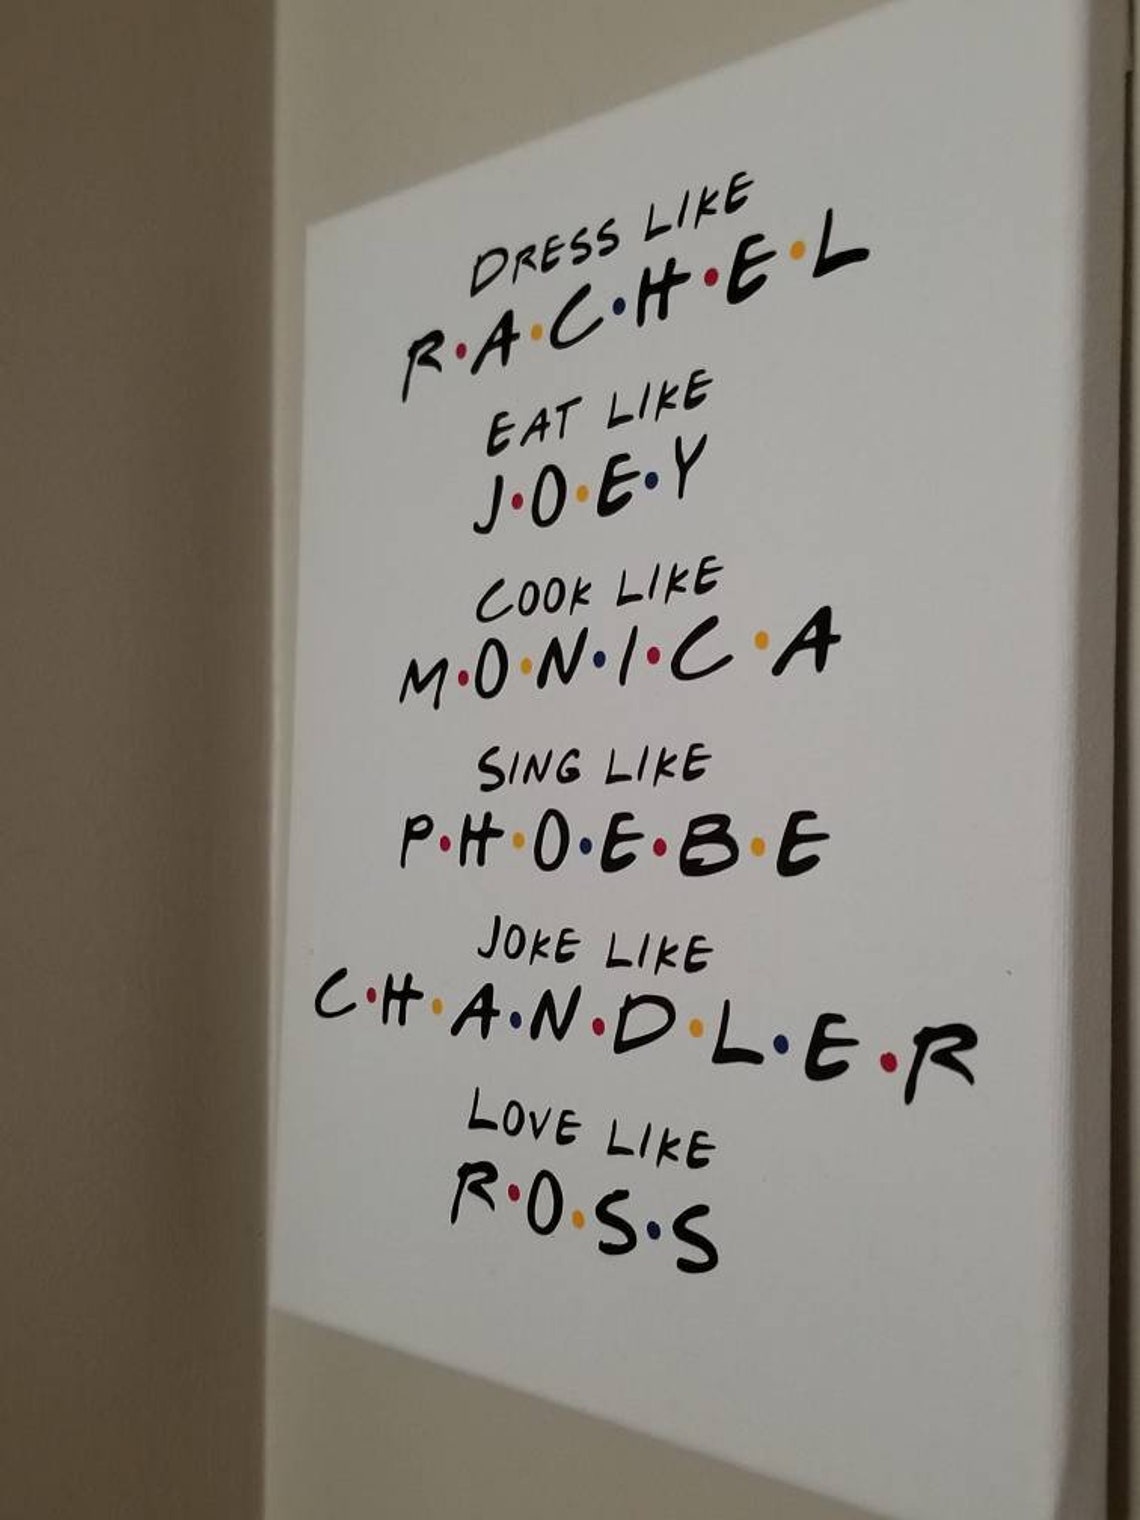 DRESS LIKE
R•A•C•H•E•L
EAT LIKE
J•O•E•Y
COOK LIKE
M•O•N•I•C•A
SING LIKE
P•H•O•E•B•E
JOKE LIKE
C•H•A•N•D•L•E•R
LOVE LIKE
R•O•S•S